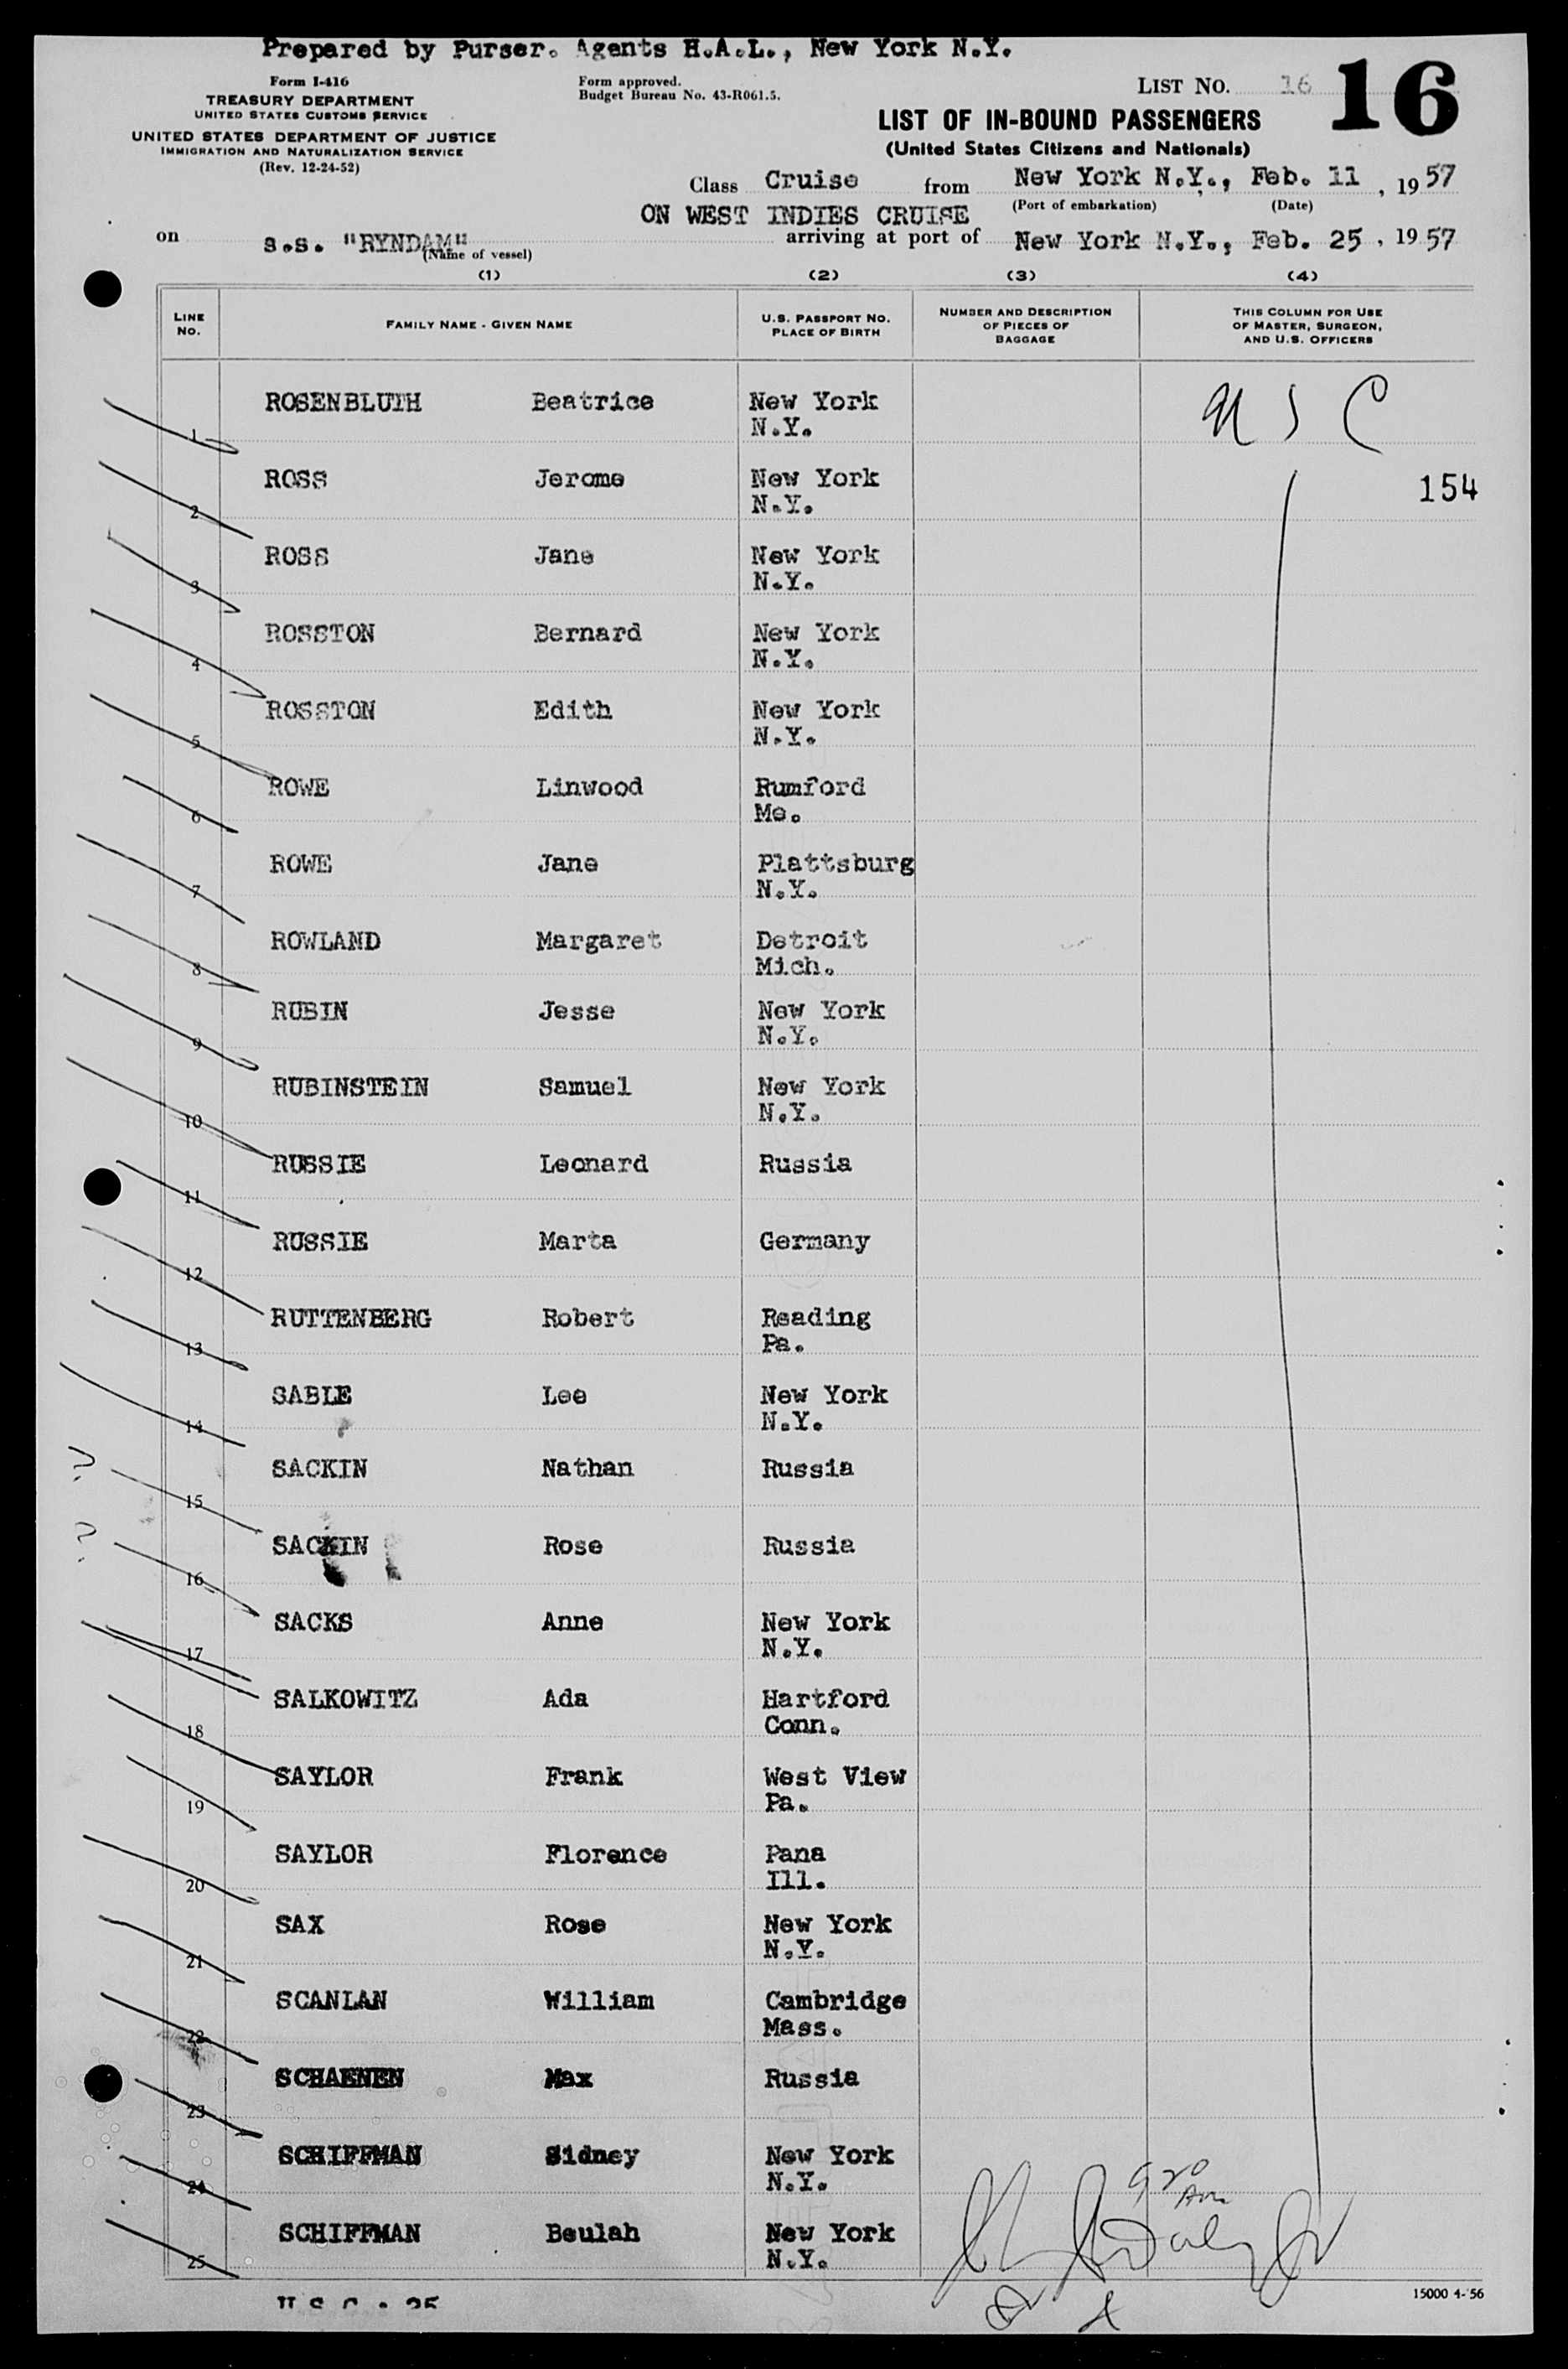 Prepared by Purser. Agents H.A.L., New York N.Y.
Form I-416
TREASURY DEPARTMENT
UNITED STATES CUSTOMS SERVICE
UNITED STATES DEPARTMENT OF JUSTICE
IMMIGRATION AND NATURALIZATION SERVICE
(Rev. 12-24-52)
Form approved.
Budget Bureau No. 43-R061.5.
LIST NO. 16
16
LIST OF IN-BOUND PASSENGERS
(United States Citizens and Nationals)
Class Cruise from New York N.Y., Feb. 11, 1957
(Port of embarkation) (Date)
ON WEST INDIES CRUISE
on s.s. "RYNDAM" arriving at port of New York N.Y., Feb. 25, 1957
(Name of vessel)
(1) (2) (3) (4)
LINE NO. FAMILY NAME - GIVEN NAME U.S. PASSPORT NO. PLACE OF BIRTH NUMBER AND DESCRIPTION OF PIECES OF BAGGAGE THIS COLUMN FOR USE OF MASTER, SURGEON, AND U.S. OFFICERS
1 ROSENBLUTH Beatrice New York N.Y. U S C
2 ROSS Jerome New York N.Y. 154
3 ROSS Jane New York N.Y.
4 ROSSTON Bernard New York N.Y.
5 ROSSTON Edith New York N.Y.
6 ROWE Linwood Rumford Me.
7 ROWE Jane Plattsburg N.Y.
8 ROWLAND Margaret Detroit Mich.
9 RUBIN Jesse New York N.Y.
10 RUBINSTEIN Samuel New York N.Y.
11 RUSSIE Leonard Russia
12 RUSSIE Marta Germany
13 RUTTENBERG Robert Reading Pa.
14 SABLE Lee New York N.Y.
15 SACKIN Nathan Russia
16 SACKIN Rose Russia
17 SACKS Anne New York N.Y.
18 SALKOWITZ Ada Hartford Conn.
19 SAYLOR Frank West View Pa.
20 SAYLOR Florence Pana Ill.
21 SAX Rose New York N.Y.
22 SCANLAN William Cambridge Mass.
23 SCHAENEN Max Russia
24 SCHIFFMAN Sidney New York N.Y.
25 SCHIFFMAN Beulah New York N.Y.
15000 4-'56